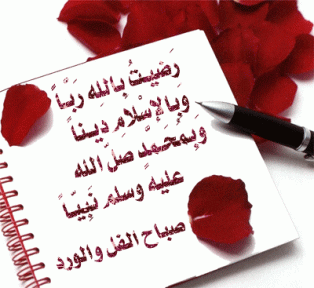 رَضيتُ بِاللهِ ربَّاً
وَبِالإسْلَامِ دِيناً
وَبِمُحَمدٍ صلَ الله
عليهِ وسلم نَبِيّاً
صباح الفل والورد